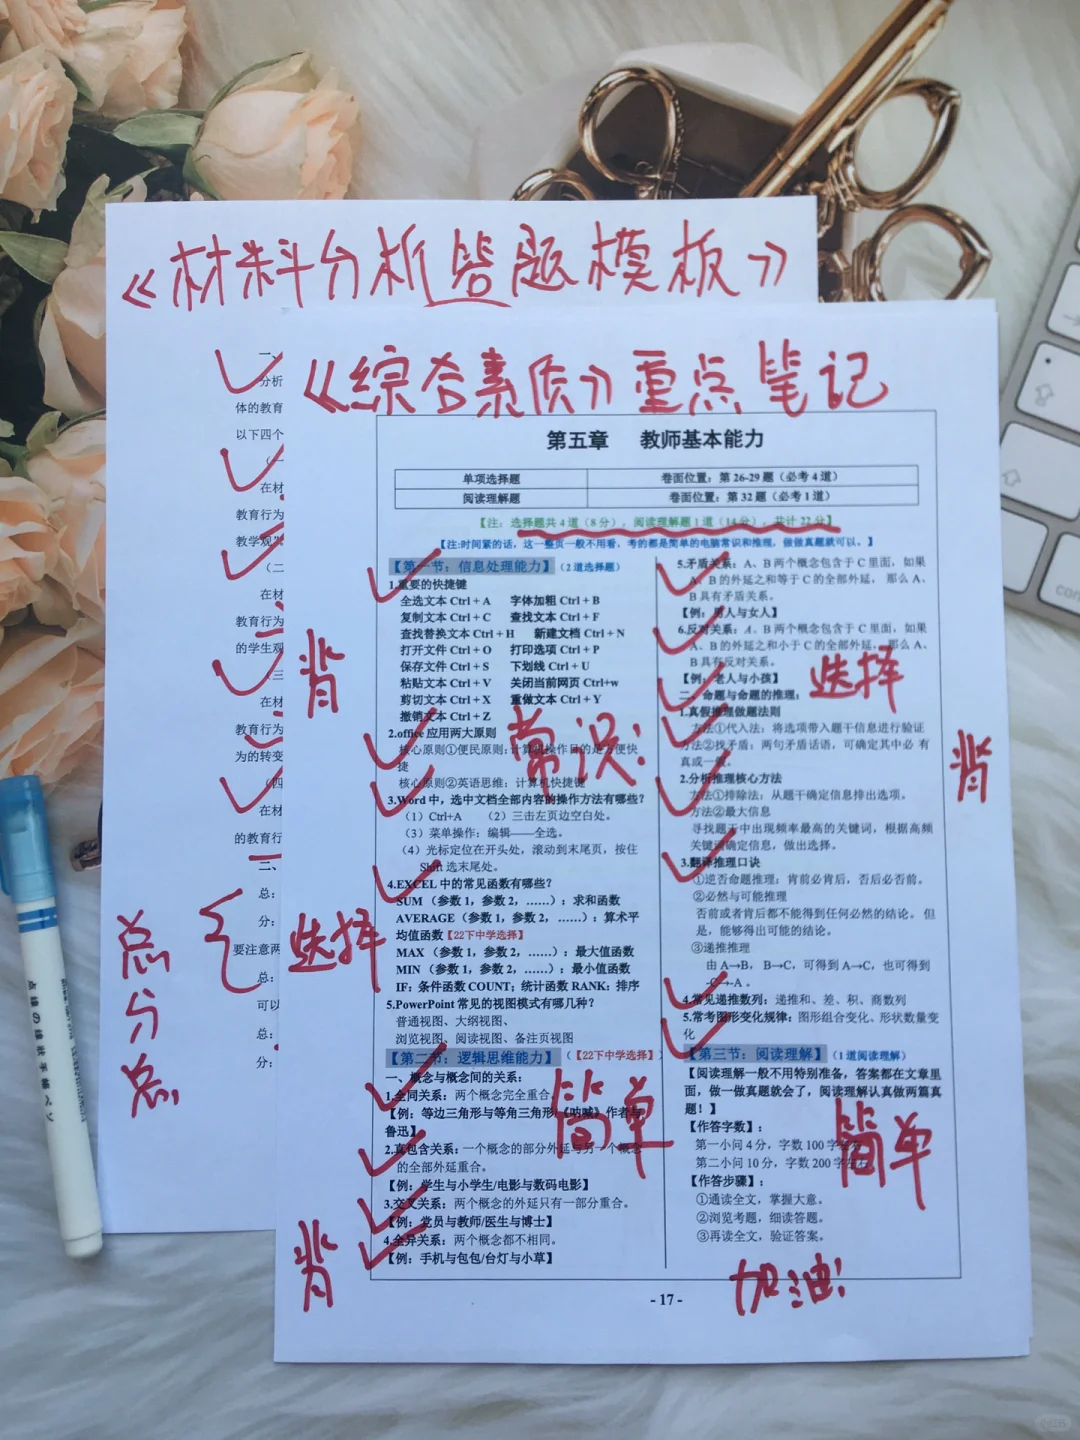 《材料分析答题模板》
一、
分析
体的教育
以下四个
（一
在材
教育行为
教学观
（二
在材
教育行为
的学生观
（三
在材
教育行为
为的转变
（四
在材
的教育行
二、
总：
分：
要注意两
总：
可以
总：
分：
总
分
总
《综合素质》重点笔记
第五章 教师基本能力
单项选择题 卷面位置：第 26-29 题（必考 4 道）
阅读理解题 卷面位置：第 32 题（必考 1 道）
【注：选择题共 4 道（8 分），阅读理解题 1 道（14 分），共计 22 分】
【注:时间紧的话，这一整页一般不用看，考的都是简单的电脑常识和推理，做做真题就可以。】
【第一节：信息处理能力】（2 道选择题）
1.重要的快捷键
全选文本 Ctrl + A 字体加粗 Ctrl + B
复制文本 Ctrl + C 查找文本 Ctrl + F
查找替换文本 Ctrl + H 新建文档 Ctrl + N
打开文件 Ctrl + O 打印选项 Ctrl + P
保存文件 Ctrl + S 下划线 Ctrl + U
粘贴文本 Ctrl + V 关闭当前网页 Ctrl+w
剪切文本 Ctrl + X 重做文本 Ctrl + Y
撤销文本 Ctrl + Z
背
常识：
2.office 应用两大原则
核心原则①便民原则：计算机操作目的是方便快
捷
核心原则②英语思维：计算机快捷键
3.Word 中，选中文档全部内容的操作方法有哪些？
（1）Ctrl+A （2）三击左页边空白处。
（3）菜单操作：编辑——全选。
（4）光标定位在开头处，滚动到末尾页，按住
Shift 选末尾处。
4.EXCEL 中的常见函数有哪些？
SUM（参数 1，参数 2，……）：求和函数
AVERAGE（参数 1，参数 2，……）：算术平
均值函数【22下中学选择】
MAX（参数 1，参数 2，……）：最大值函数
MIN（参数 1，参数 2，……）：最小值函数
IF：条件函数 COUNT；统计函数 RANK：排序
选择
5.PowerPoint 常见的视图模式有哪几种？
普通视图、大纲视图、
浏览视图、阅读视图、备注页视图
【第二节：逻辑思维能力】（【22下中学选择】）
一、概念与概念间的关系：
1.全同关系：两个概念完全重合。
【例：等边三角形与等角三角形/《呐喊》作者与
鲁迅】
简单
2.真包含关系：一个概念的部分外延与另一个概念
的全部外延重合。
【例：学生与小学生/电影与数码电影】
3.交叉关系：两个概念的外延只有一部分重合。
【例：党员与教师/医生与博士】
4.全异关系：两个概念都不相同。
【例：手机与包包/台灯与小草】
背
5.矛盾关系：A、B 两个概念包含于 C 里面，如果
A、B 的外延之和等于 C 的全部外延，那么 A、
B 具有矛盾关系。
【例：男人与女人】
6.反对关系：A、B 两个概念包含于 C 里面，如果
A、B 的外延之和小于 C 的全部外延，那么 A、
B 具有反对关系。
【例：老人与小孩】
选择
二、命题与命题的推理：
1.真假推理做题法则
方法①代入法：将选项带入题干信息进行验证
方法②找矛盾：两句矛盾话语，可确定其中必 有
真或一假。
背
2.分析推理核心方法
方法①排除法：从题干确定信息排出选项。
方法②最大信息
寻找题干中出现频率最高的关键词，根据高频
关键词确定信息，做出选择。
3.翻译推理口诀
①逆否命题推理：肯前必肯后，否后必否前。
②必然与可能推理
否前或者肯后都不能得到任何必然的结论。 但
是，能够得出可能的结论。
③递推推理
由 A→B， B→C，可得到 A→C，也可得到
-C→-A 。
4.常见递推数列：递推和、差、积、商数列
5.常考图形变化规律：图形组合变化、形状数量变
化
【第三节：阅读理解】（1 道阅读理解）
【阅读理解一般不用特别准备，答案都在文章里
面，做一做真题就会了，阅读理解认真做两篇真
题！】
【作答字数】：
第一小问 4 分，字数 100 字左右
第二小问 10 分，字数 200 字左右。
简单
【作答步骤】：
①通读全文，掌握大意。
②浏览考题，细读答题。
③再读全文，验证答案。
加油！
- 17 -